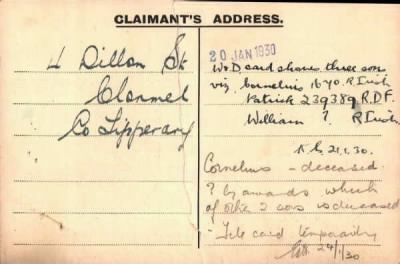 CLAIMANT'S ADDRESS.
4 Dillon St
Clonmel
Co Tipperary
20 JAN 1930
W&D card shows three sons
viz Cornelius 1640 R Irish
Patrick 239389 R.D.F.
William ? R Irish
21.1.30.
Cornelius - deceased.
? by awards which
of other 2 sons is deceased
- File card temporarily
24/1/30